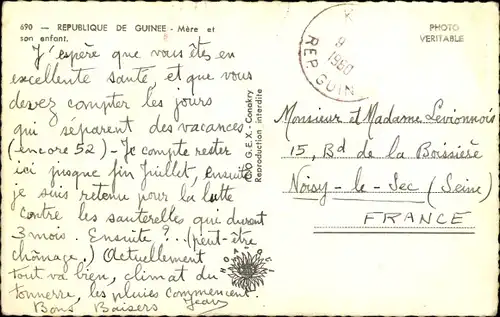 690 — REPUBLIQUE DE GUINEE - Mère et
son enfant.
J'espère que vous êtes en
excellente santé, et que vous
devez compter les jours
qui séparent des vacances
(encore 52) - Je compte rester
ici jusque fin Juillet, ensuite
je suis retenu pour la lutte
contre les sauterelles qui durent
3 mois. Ensuite ?.. (peut-être
chômage.) Actuellement
tout va bien, climat du
tonnerre, les pluies commencent.
Bons Baisers Jean
G.E.X. - Conakry
Reproduction interdite
HOA-QUI
8
1960
REP GUIN
PHOTO
VERITABLE
Monsieur et Madame Levionnois
15, Bd de la Boissière
Noisy-le-Sec (Seine)
FRANCE